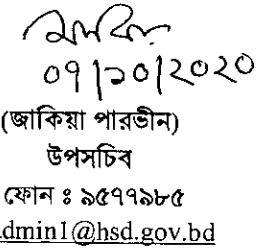 ০৭/১০/২০২০
(জাকিয়া পারভীন)
উপসচিব
ফোন ঃ ৯৫৭৭৯৮৫
dmin1@hsd.gov.bd